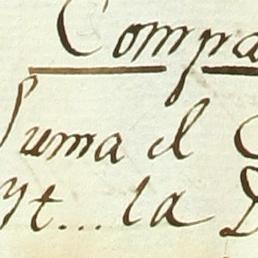 Compa
Suma el C
yt... la D